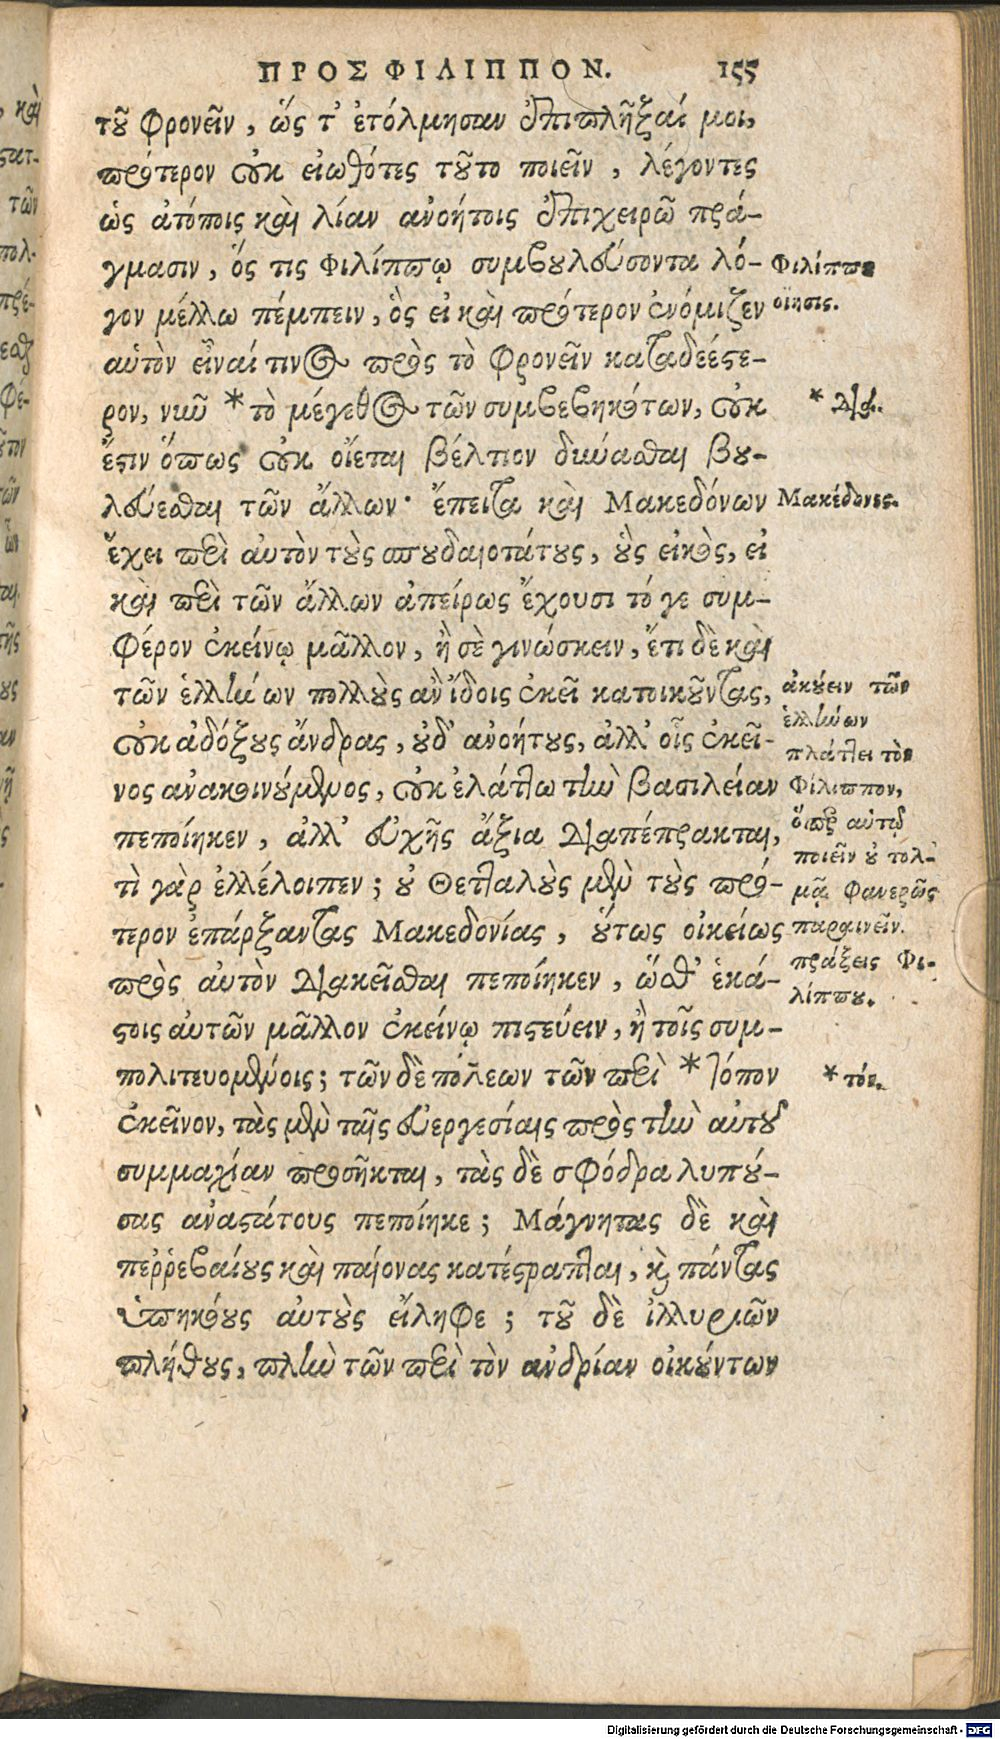 ΠΡΟΣ ΦΙΛΙΠΠΟΝ. 155
τοῦ φρονεῖν, ὥς τ' ἐτόλμησαν ἐπιπλῆξαί μοι,
πρότερον οὐκ εἰωθότες τοῦτο ποιεῖν, λέγοντες
ὡς ἀτόποις καὶ λίαν ἀνοήτοις ἐπιχειρῶ πρά-
γμασιν, ὅς τις Φιλίππῳ συμβουλεύσοντα λό-
γον μέλλω πέμπειν, ὃς εἰ καὶ πρότερον ἐνόμιζεν
αὑτὸν εἶναί τινος πρὸς τὸ φρονεῖν καταδεέστε-
ρον, νῦν * τὸ μέγεθος τῶν συμβεβηκότων, οὐκ
ἔστιν ὅπως οὐκ οἴεται βέλτιον δύνασθαι βου-
λεύεσθαι τῶν ἄλλων· ἔπειτα καὶ Μακεδόνων
ἔχει περὶ αὑτὸν τοὺς σπουδαιοτάτους, οὓς εἰκὸς, εἰ
καὶ περὶ τῶν ἄλλων ἀπείρως ἔχουσι τό γε συμ-
φέρον ἐκείνῳ μᾶλλον, ἢ σὲ γινώσκειν, ἔτι δὲ καὶ
τῶν ἑλλήνων πολλοὺς ἂν ἴδοις ἐκεῖ κατοικοῦντας,
οὐκ ἀδόξους ἄνδρας, οὐδ' ἀνοήτους, ἀλλ' οἷς ἐκεῖ-
νος ἀνακοινούμενος, οὐκ ἐλάττω τὴν βασιλείαν
πεποίηκεν, ἀλλ' εὐχῆς ἄξια διαπέπρακται,
τὶ γὰρ ἐλλέλοιπεν; οὐ Θετταλοὺς μὲν τοὺς πρό-
τερον ἐπάρξαντας Μακεδονίας, οὕτως οἰκείως
πρὸς αὑτὸν διακεῖσθαι πεποίηκεν, ὥσθ' ἑκά-
στοις αὐτῶν μᾶλλον ἐκείνῳ πιστεύειν, ἢ τοῖς συμ-
πολιτευομένοις; τῶν δὲ πόλεων τῶν περὶ * τόπον
ἐκεῖνον, τὰς μὲν ταῖς εὐεργεσίαις πρὸς τὴν αὑτοῦ
συμμαχίαν προσῆκται, τὰς δὲ σφόδρα λυπού-
σας ἀναστάτους πεποίηκε; Μάγνητας δὲ καὶ
περῥεβαίους καὶ παίονας κατέστραπται, καὶ πάντας
ὑπηκόους αὐτοὺς εἴληφε; τοῦ δὲ ἰλλυριῶν
πλήθους, πλὴν τῶν περὶ τὸν ἀνδρίαν οἰκούντων
Φιλίππου
οἴησις.
* διὰ.
Μακέδονες.
ἀκούειν τῶν
ἑλλήνων
πλάττει τὸν
Φίλιππον,
ὅπερ αὐτῷ
ποιεῖν οὐ τολ-
μᾷ φανερῶς
παραινεῖν.
πράξεις Φι-
λίππου.
* τόν.
Digitalisierung gefördert durch die Deutsche Forschungsgemeinschaft - DFG